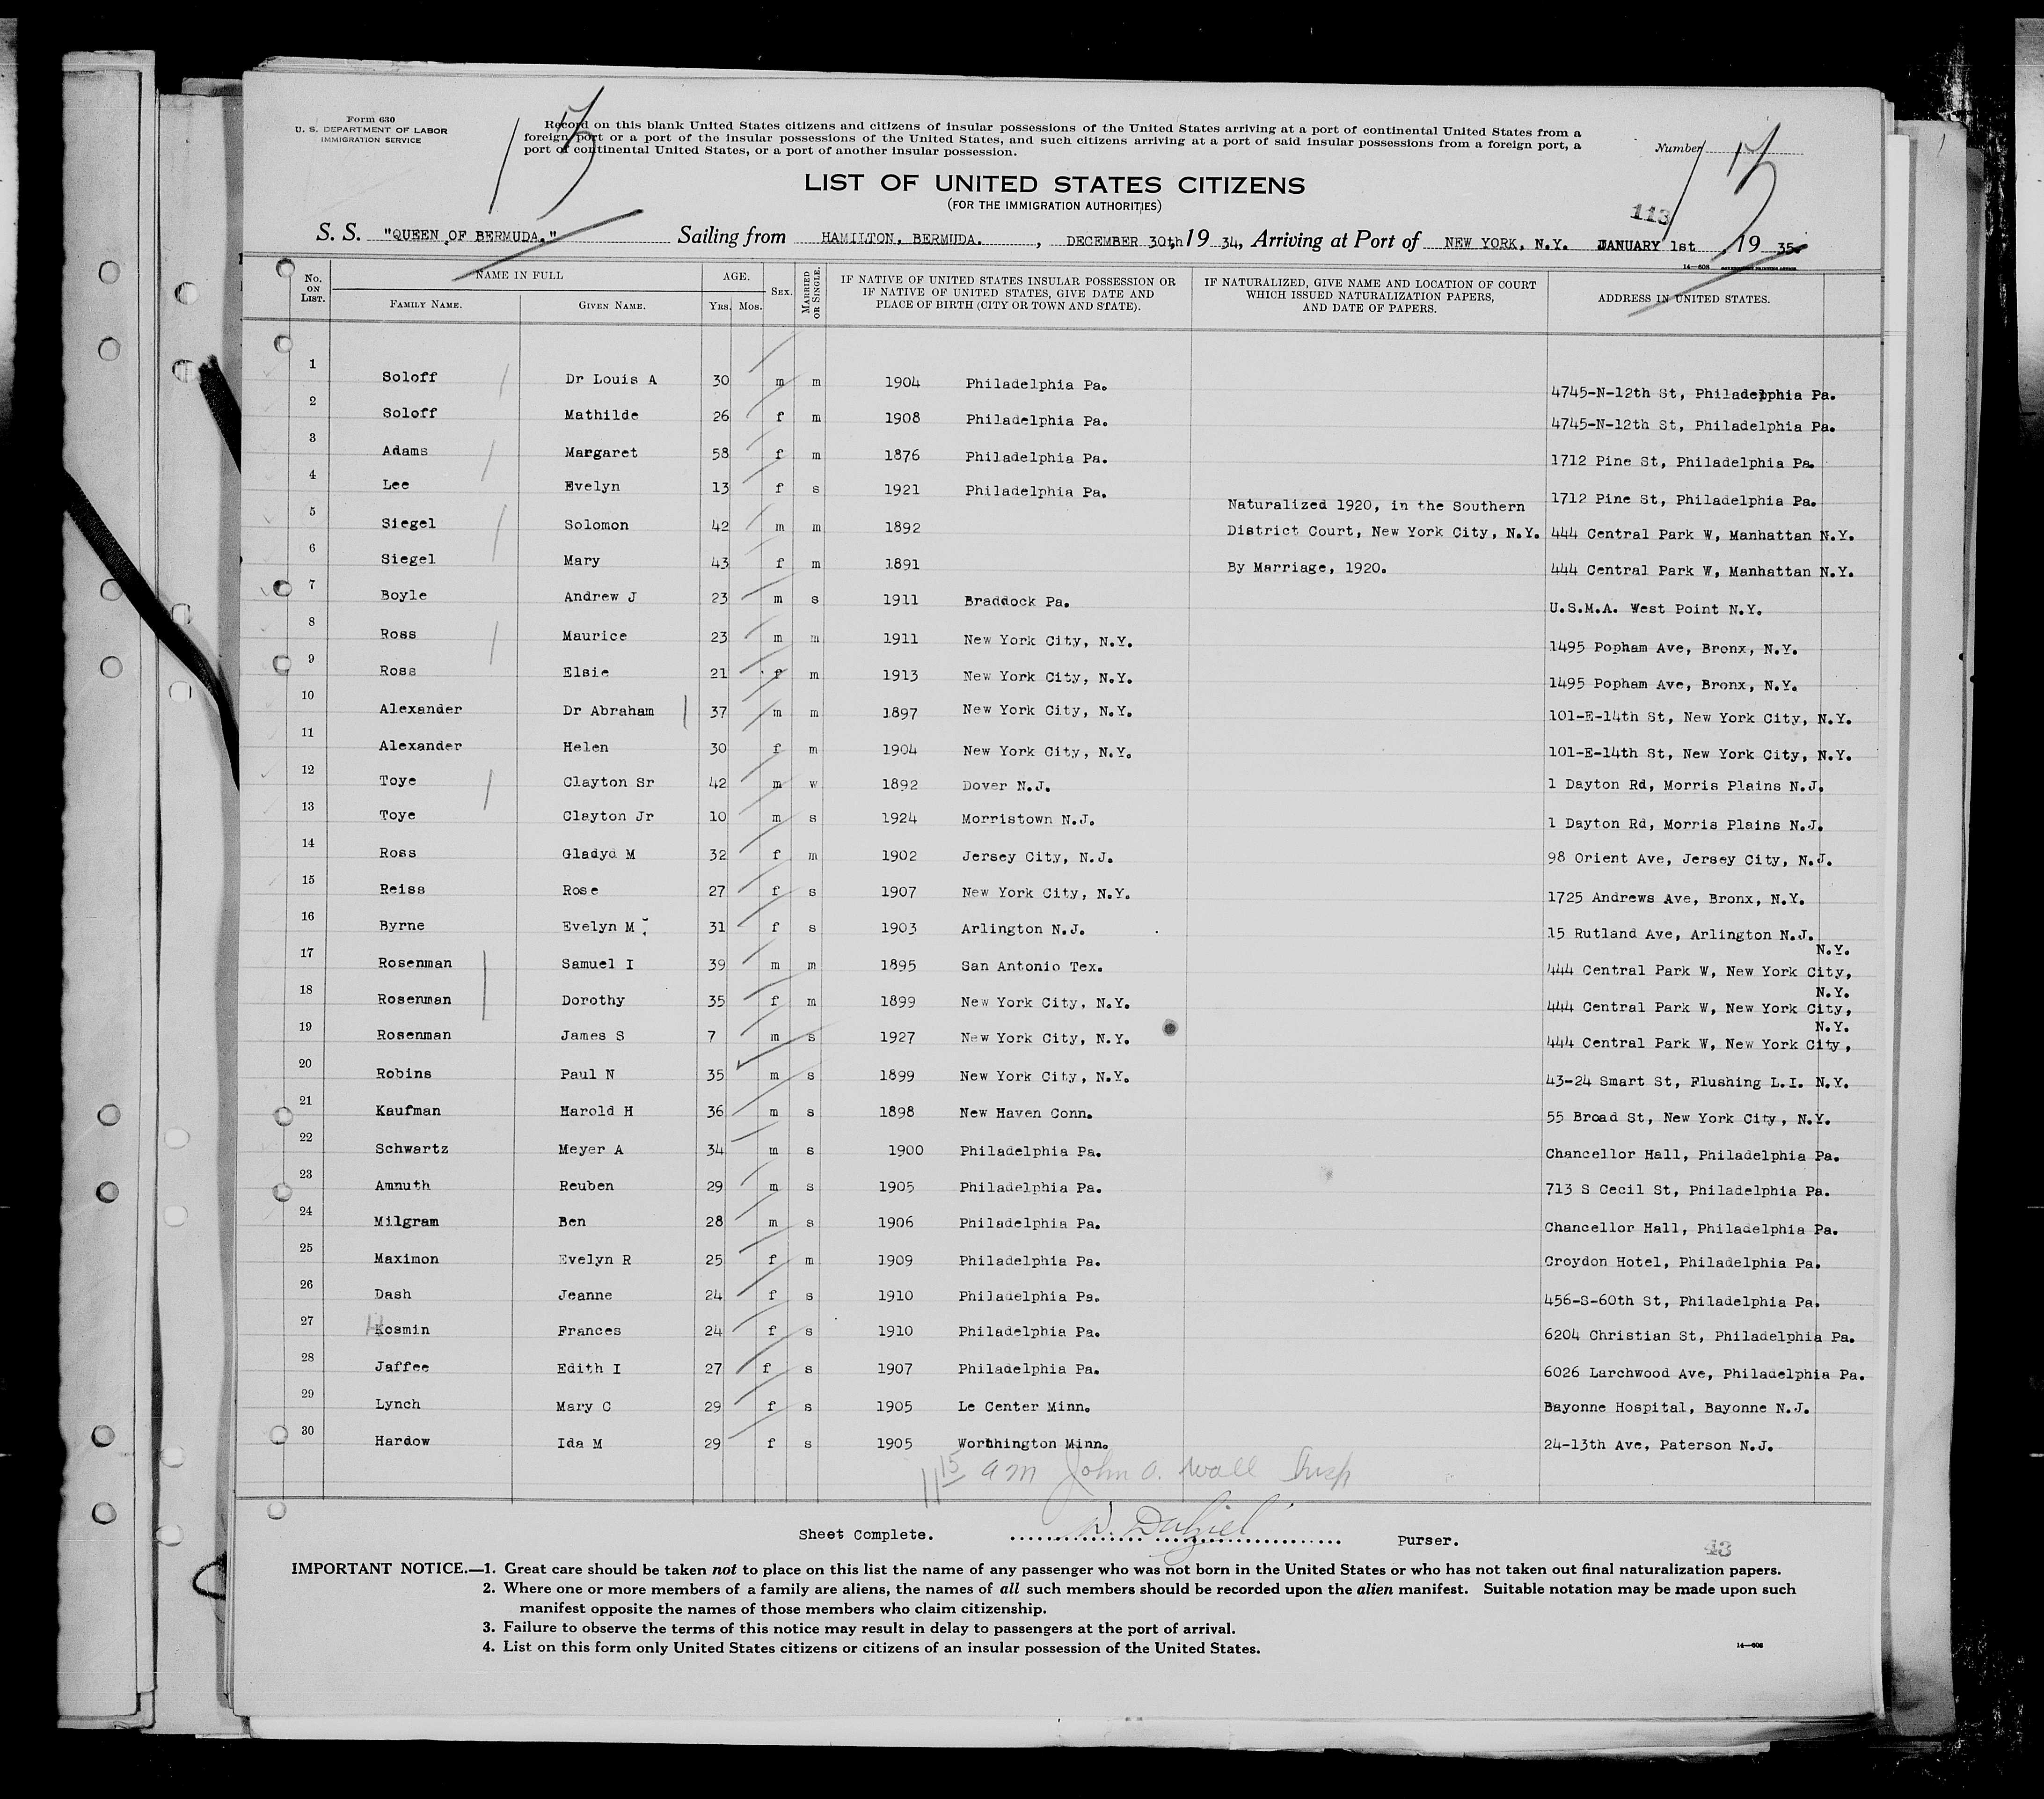 Form 630
U. S. DEPARTMENT OF LABOR
IMMIGRATION SERVICE
Record on this blank United States citizens and citizens of insular possessions of the United States arriving at a port of continental United States from a
foreign port or a port of the insular possessions of the United States, and such citizens arriving at a port of said insular possessions from a foreign port, a
port of continental United States, or a port of another insular possession.
Number
LIST OF UNITED STATES CITIZENS
(FOR THE IMMIGRATION AUTHORITIES)
113
S. S. "QUEEN OF BERMUDA." Sailing from HAMILTON, BERMUDA. , DECEMBER 30th 19 34, Arriving at Port of NEW YORK, N.Y. JANUARY 1st , 19 35
14—608 GOVERNMENT PRINTING OFFICE
No. ON LIST. NAME IN FULL FAMILY NAME. GIVEN NAME. AGE. YRS. MOS. SEX. MARRIED OR SINGLE. IF NATIVE OF UNITED STATES INSULAR POSSESSION OR IF NATIVE OF UNITED STATES, GIVE DATE AND PLACE OF BIRTH (CITY OR TOWN AND STATE). IF NATURALIZED, GIVE NAME AND LOCATION OF COURT WHICH ISSUED NATURALIZATION PAPERS, AND DATE OF PAPERS. ADDRESS IN UNITED STATES.
1 Soloff Dr Louis A 30 m m 1904 Philadelphia Pa. 4745-N-12th St, Philadelphia Pa.
2 Soloff Mathilde 26 f m 1908 Philadelphia Pa. 4745-N-12th St, Philadelphia Pa.
3 Adams Margaret 58 f m 1876 Philadelphia Pa. 1712 Pine St, Philadelphia Pa.
4 Lee Evelyn 13 f s 1921 Philadelphia Pa. 1712 Pine St, Philadelphia Pa.
Naturalized 1920, in the Southern
5 Siegel Solomon 42 m m 1892 District Court, New York City, N.Y. 444 Central Park W, Manhattan N.Y.
6 Siegel Mary 43 f m 1891 By Marriage, 1920. 444 Central Park W, Manhattan N.Y.
7 Boyle Andrew J 23 m s 1911 Braddock Pa. U.S.M.A. West Point N.Y.
8 Ross Maurice 23 m m 1911 New York City, N.Y. 1495 Popham Ave, Bronx, N.Y.
9 Ross Elsie 21 f m 1913 New York City, N.Y. 1495 Popham Ave, Bronx, N.Y.
10 Alexander Dr Abraham 37 m m 1897 New York City, N.Y. 101-E-14th St, New York City, N.Y.
11 Alexander Helen 30 f m 1904 New York City, N.Y. 101-E-14th St, New York City, N.Y.
12 Toye Clayton Sr 42 m w 1892 Dover N.J. 1 Dayton Rd, Morris Plains N.J.
13 Toye Clayton Jr 10 m s 1924 Morristown N.J. 1 Dayton Rd, Morris Plains N.J.
14 Ross Gladyd M 32 f m 1902 Jersey City, N.J. 98 Orient Ave, Jersey City, N.J.
15 Reiss Rose 27 f s 1907 New York City, N.Y. 1725 Andrews Ave, Bronx, N.Y.
16 Byrne Evelyn M 31 f s 1903 Arlington N.J. 15 Rutland Ave, Arlington N.J.
17 Rosenman Samuel I 39 m m 1895 San Antonio Tex. 444 Central Park W, New York City, N.Y.
18 Rosenman Dorothy 35 f m 1899 New York City, N.Y. 444 Central Park W, New York City, N.Y.
19 Rosenman James S 7 m s 1927 New York City, N.Y. 444 Central Park W, New York City, N.Y.
20 Robins Paul N 35 m s 1899 New York City, N.Y. 43-24 Smart St, Flushing L.I. N.Y.
21 Kaufman Harold H 36 m s 1898 New Haven Conn. 55 Broad St, New York City, N.Y.
22 Schwartz Meyer A 34 m s 1900 Philadelphia Pa. Chancellor Hall, Philadelphia Pa.
23 Amnuth Reuben 29 m s 1905 Philadelphia Pa. 713 S Cecil St, Philadelphia Pa.
24 Milgram Ben 28 m s 1906 Philadelphia Pa. Chancellor Hall, Philadelphia Pa.
25 Maximon Evelyn R 25 f m 1909 Philadelphia Pa. Croydon Hotel, Philadelphia Pa.
26 Dash Jeanne 24 f s 1910 Philadelphia Pa. 456-S-60th St, Philadelphia Pa.
27 Kosmin Frances 24 f s 1910 Philadelphia Pa. 6204 Christian St, Philadelphia Pa.
28 Jaffee Edith I 27 f s 1907 Philadelphia Pa. 6026 Larchwood Ave, Philadelphia Pa.
29 Lynch Mary C 29 f s 1905 Le Center Minn. Bayonne Hospital, Bayonne N.J.
30 Hardow Ida M 29 f s 1905 Worthington Minn. 24-13th Ave, Paterson N.J.
11 15 am John O. Wall Insp
Sheet Complete. D. Dalziel Purser.
43
IMPORTANT NOTICE.—1. Great care should be taken not to place on this list the name of any passenger who was not born in the United States or who has not taken out final naturalization papers.
2. Where one or more members of a family are aliens, the names of all such members should be recorded upon the alien manifest. Suitable notation may be made upon such
manifest opposite the names of those members who claim citizenship.
3. Failure to observe the terms of this notice may result in delay to passengers at the port of arrival.
4. List on this form only United States citizens or citizens of an insular possession of the United States.
14—608